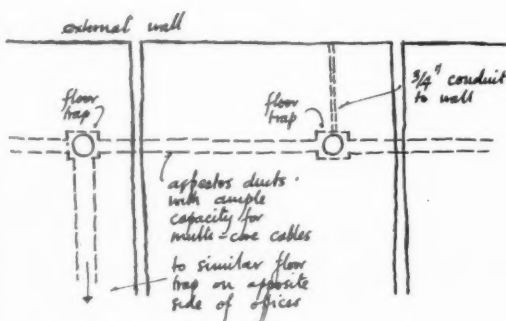 external wall
floor
trap
floor
trap
3/4" conduit
to wall
asbestos ducts
with ample
capacity for
multi-core cables
to similar floor
trap on opposite
side of offices